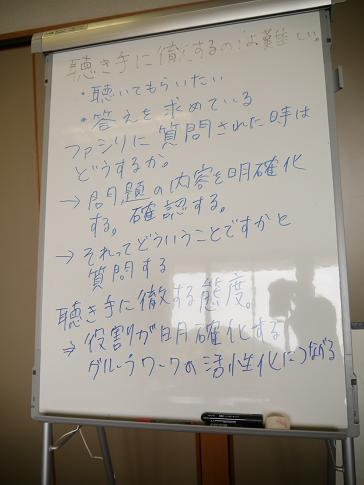 聴き手に徹するのは難しい。
・聴いてもらいたい
・答えを求めている
ファシリに質問された時は
どうするか。
→問題の内容を明確化
する。確認する。
→それってどういうことですかと
質問する
聴き手に徹する態度。
⇒役割が明確化する
グループワークの活性化につながる